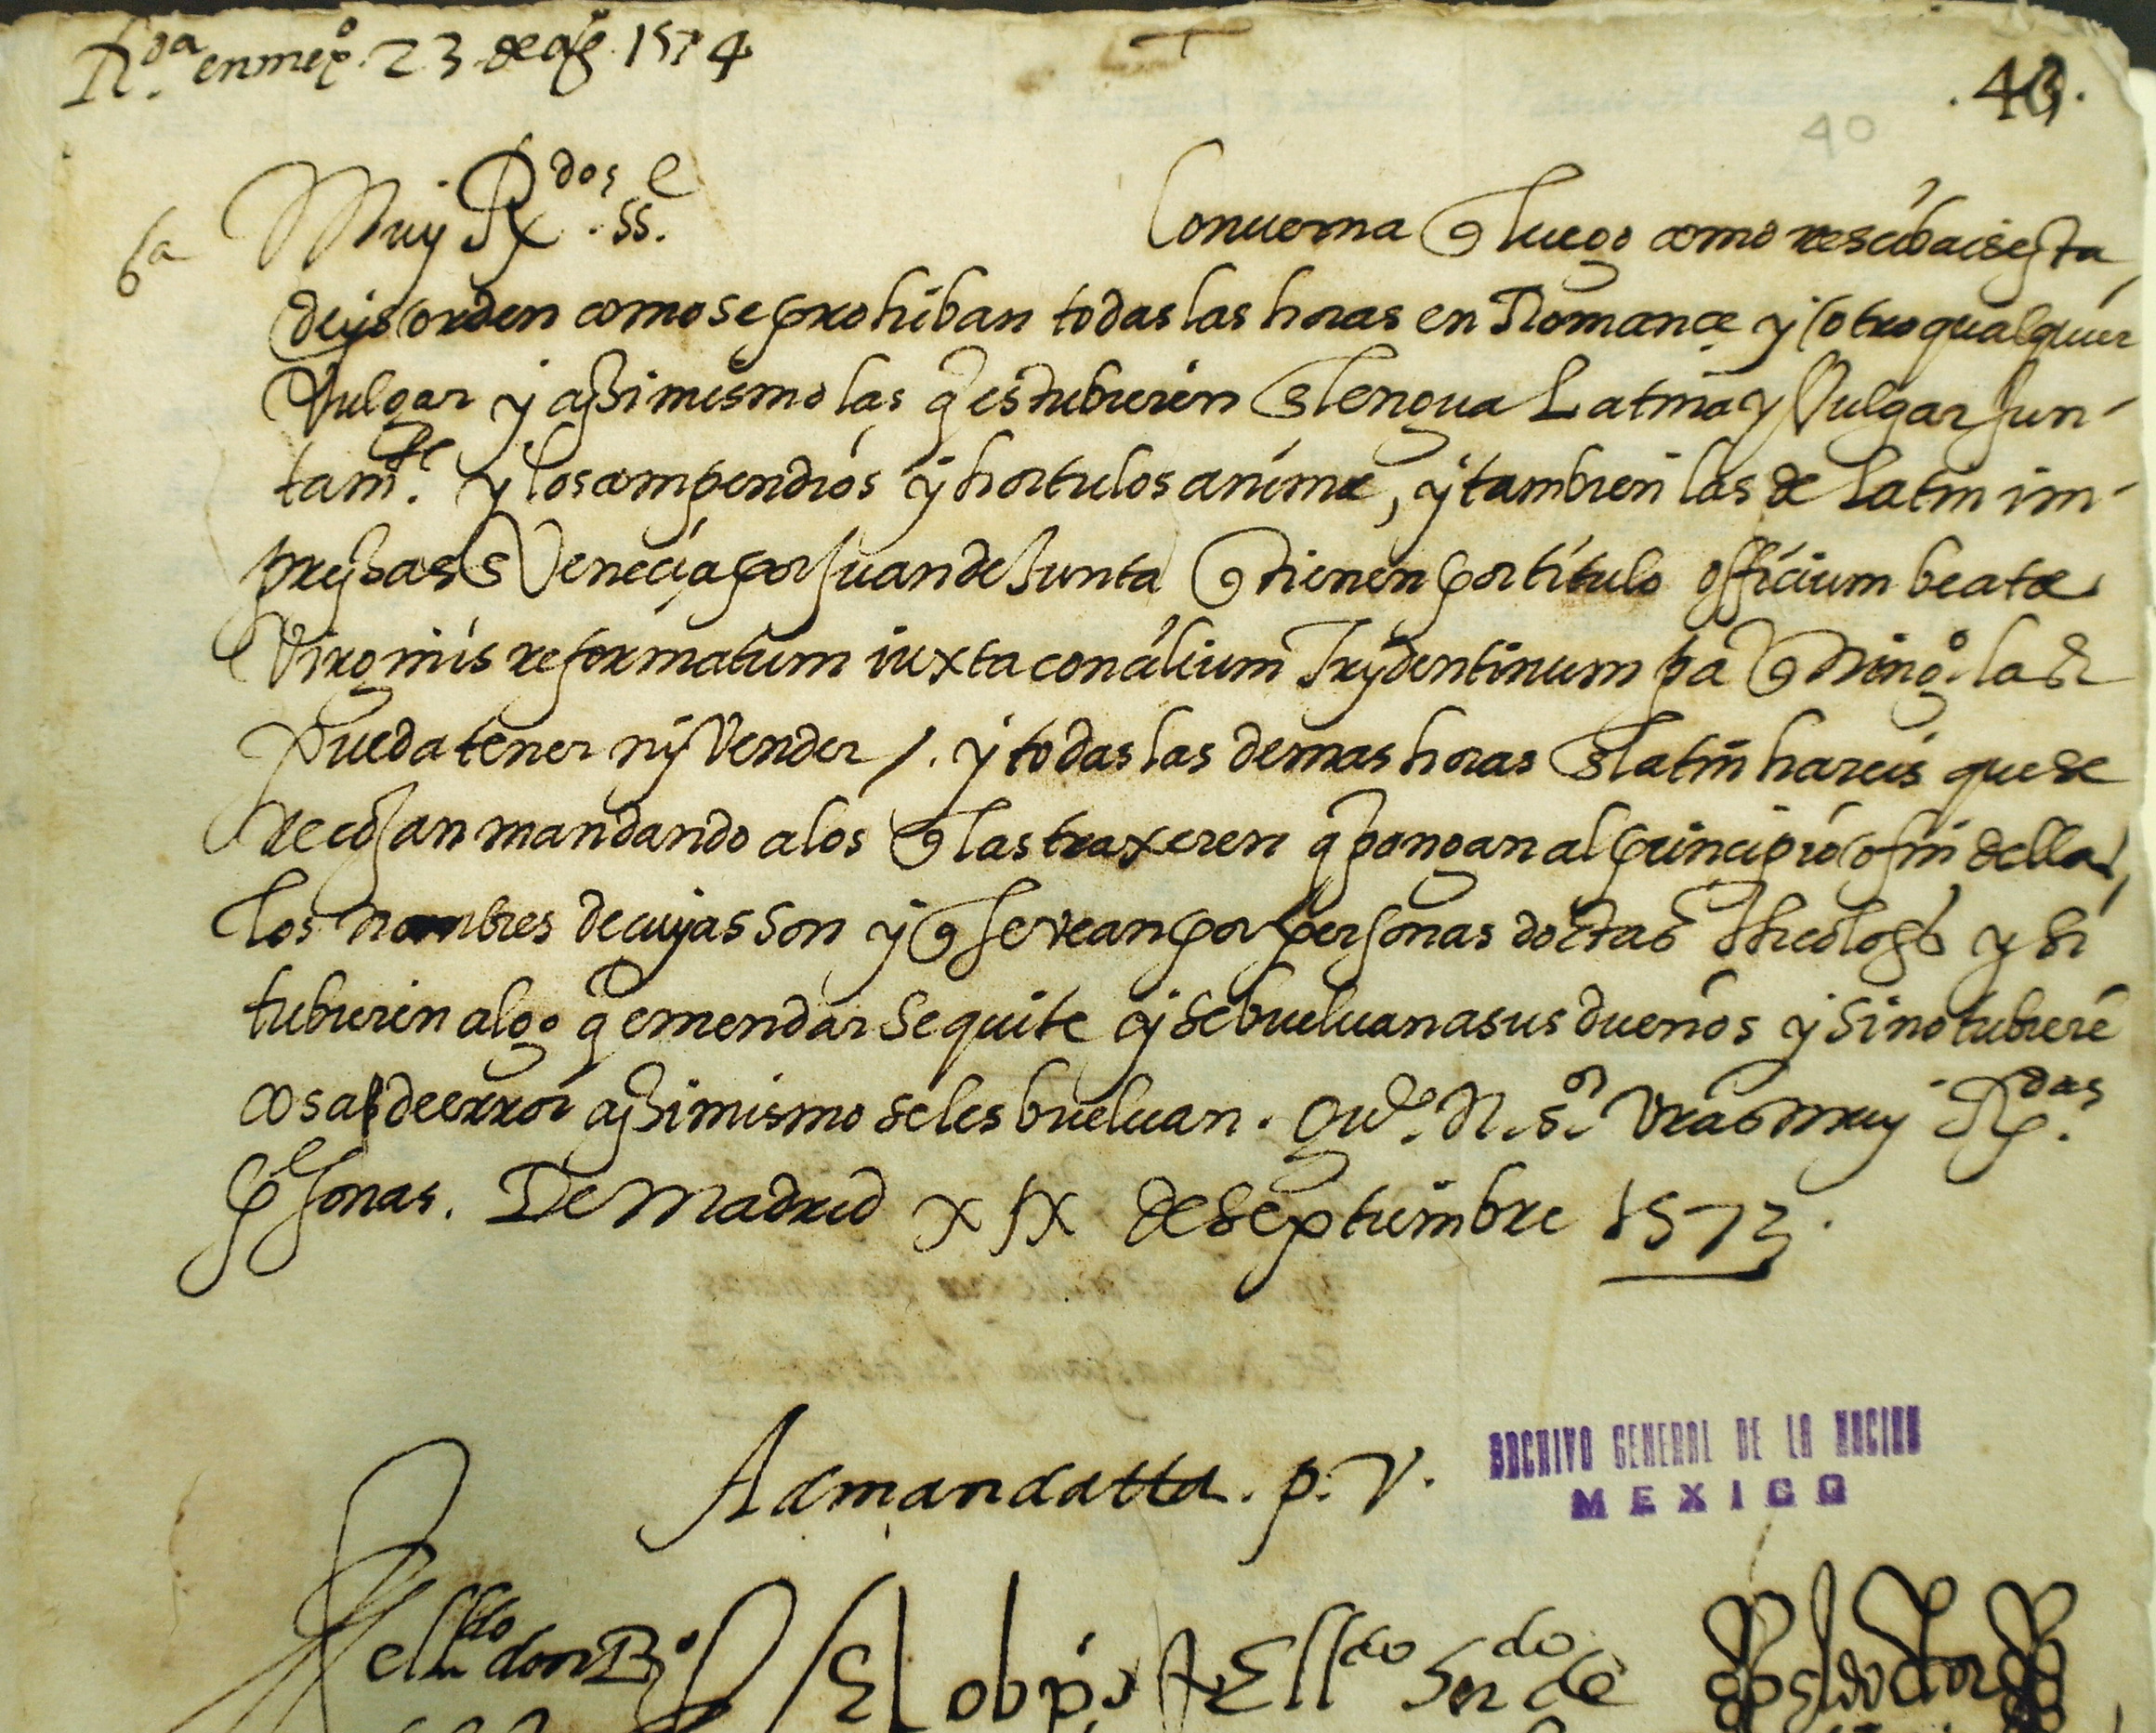 R.da en mex.o 23 de ag.o 1574
.43.
40
6a
Muy R.dos ss.es
Conuerna q luego como rescibais esta
deys orden como se prohiban todas las horas en Romance y otro qualquier
Vulgar y assi mismo las q estubieren en lengua Latina y Vulgar Jun-
tam.te y los compendios y hortulos anime, y tambien las de Latin im-
pressas en Venecia por Juan de Junta q tienen por titulo officium beate
Virginis reformatum iuxta concilium Trydentinum pa q ning.o las
pueda tener ny Vender /. y todas las demas horas en latin hareis que se
recojan mandando a los q las traxeren q pongan al principio o fin dellas
los nombres de cuyas son y q se vean por personas doctas theologos y si
tubieren algo q emendar se quite y se bueluan a sus dueños y si no tubierē
cosas de error assi mismo se les bueluan. Gu.e N. s.or vras muy R.das
personas. De Madrid XIX de septiembre 1573.
Ad mandatta. p. V.
ARCHIVO GENERAL DE LA NACION
MEXICO
el l.do don
El obpo
El l.do
el doctor